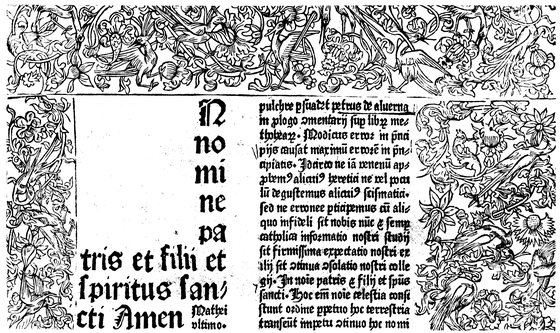 N
no
mi
ne
pa
tris et filij et
spiritus san/
cti Amen
Mathei
vltimo.
pulchre psuadet petrus de aluerna
in plogo ɔmentarij sup libɤ me-
Modicus error in pnci
pijs causat maximū errorē in pn-
cipiatis. Idcirco ne iā
alicuiꝰ heretici ne vel pocu
lū degustemus alicuiꝰ scismatici.
sed ne erroneo pticipemus cū ali-
quo infideli sit nobis nūc ⁊ semp
catholica informatio nostri studij
sit firmissima expectatio nostri ex
ilij sit ɔtinua ɔsolatio nostri colle
gij. In noīe patris ⁊ filij et spūs
sancti. Hoc em noīe celestia consi
stunt ordine ppetuo hoc terrestria
transeūt impetu ɔtinuo hoc nomi